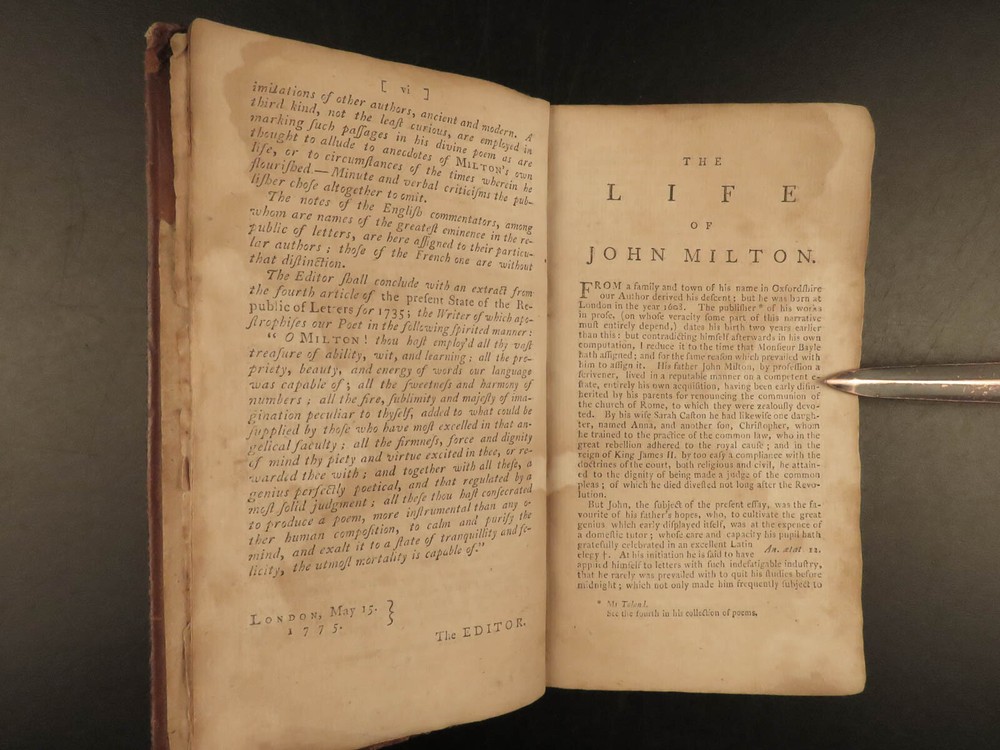 [ vi ]
imitations of other authors, ancient and modern. A
third kind, not the leaſt curious, are employed in
marking ſuch paſſages in his divine poem as are
thought to allude to anecdotes of MILTON's own
life, or to circumſtances of the times wherein he
flouriſhed.—Minute and verbal criticiſms the pub-
liſher choſe altogether to omit.
The notes of the Engliſh commentators, among
whom are names of the greateſt eminence in the re-
public of letters, are here aſſigned to their particu-
lar authors: thoſe of the French one are without
that diſtinction.
The Editor ſhall conclude with an extract from
the fourth article of the preſent State of the Re-
public of Letters for 1735; the Writer of which apo-
ſtrophiſes our Poet in the following ſpirited manner:
" O MILTON! thou haſt employ'd all thy vaſt
treaſure of ability, wit, and learning; all the pro-
priety, beauty, and energy of words our language
was capable of; all the ſweetneſs and harmony of
numbers; all the fire, ſublimity and majeſty of ima-
gination peculiar to thyſelf, added to what could be
ſupplied by thoſe who have moſt excelled in that an-
gelical faculty: all the firmneſs, force and dignity
of mind thy piety and virtue excited in thee, or re-
warded thee with: and together with all theſe, a
genius perfectly poetical, and that regulated by a
moſt ſolid judgment; all theſe thou haſt conſecrated
to produce a poem, more inſtrumental than any o-
ther human compoſition, to calm and purify the
mind, and exalt it to a ſtate of tranquillity and fe-
licity, the utmoſt mortality is capable of."
LONDON, May 15. }
1775.
The EDITOR.
THE
LIFE
OF
JOHN MILTON.
FROM a family and town of his name in Oxfordſhire
our Author derived his deſcent; but he was born at
London in the year 1608. The publiſher * of his works
in proſe, (on whoſe veracity ſome part of this narrative
muſt entirely depend,) dates his birth two years earlier
than this: but contradicting himſelf afterwards in his own
computation, I reduce it to the time that Monſieur Bayle
hath aſſigned; and for the ſame reaſon which prevailed with
him to aſſign it. His father John Milton, by profeſſion a
ſcrivener, lived in a reputable manner on a competent e-
ſtate, entirely his own acquiſition, having been early diſin-
herited by his parents for renouncing the communion of
the church of Rome, to which they were zealouſly devo-
ted. By his wife Sarah Caſton he had likewiſe one daugh-
ter, named Anna, and another ſon, Chriſtopher, whom
he trained to the practice of the common law, who in the
great rebellion adhered to the royal cauſe; and in the
reign of King James II. by too eaſy a compliance with the
doctrines of the court, both religious and civil, he attain-
ed to the dignity of being made a judge of the common
pleas; of which he died diveſted not long after the Revo-
lution.
But John, the ſubject of the preſent eſſay, was the fa-
vourite of his father's hopes, who, to cultivate the great
genius which early diſplayed itſelf, was at the expence of
a domeſtic tutor; whoſe care and capacity his pupil hath
gratefully celebrated in an excellent Latin
elegy †. At his initiation he is ſaid to have An. ætat 12.
applied himſelf to letters with ſuch indefatigable induſtry,
that he rarely was prevailed with to quit his ſtudies before
midnight; which not only made him frequently ſubject to
* Mr Toland.
See the fourth in his collection of poems.